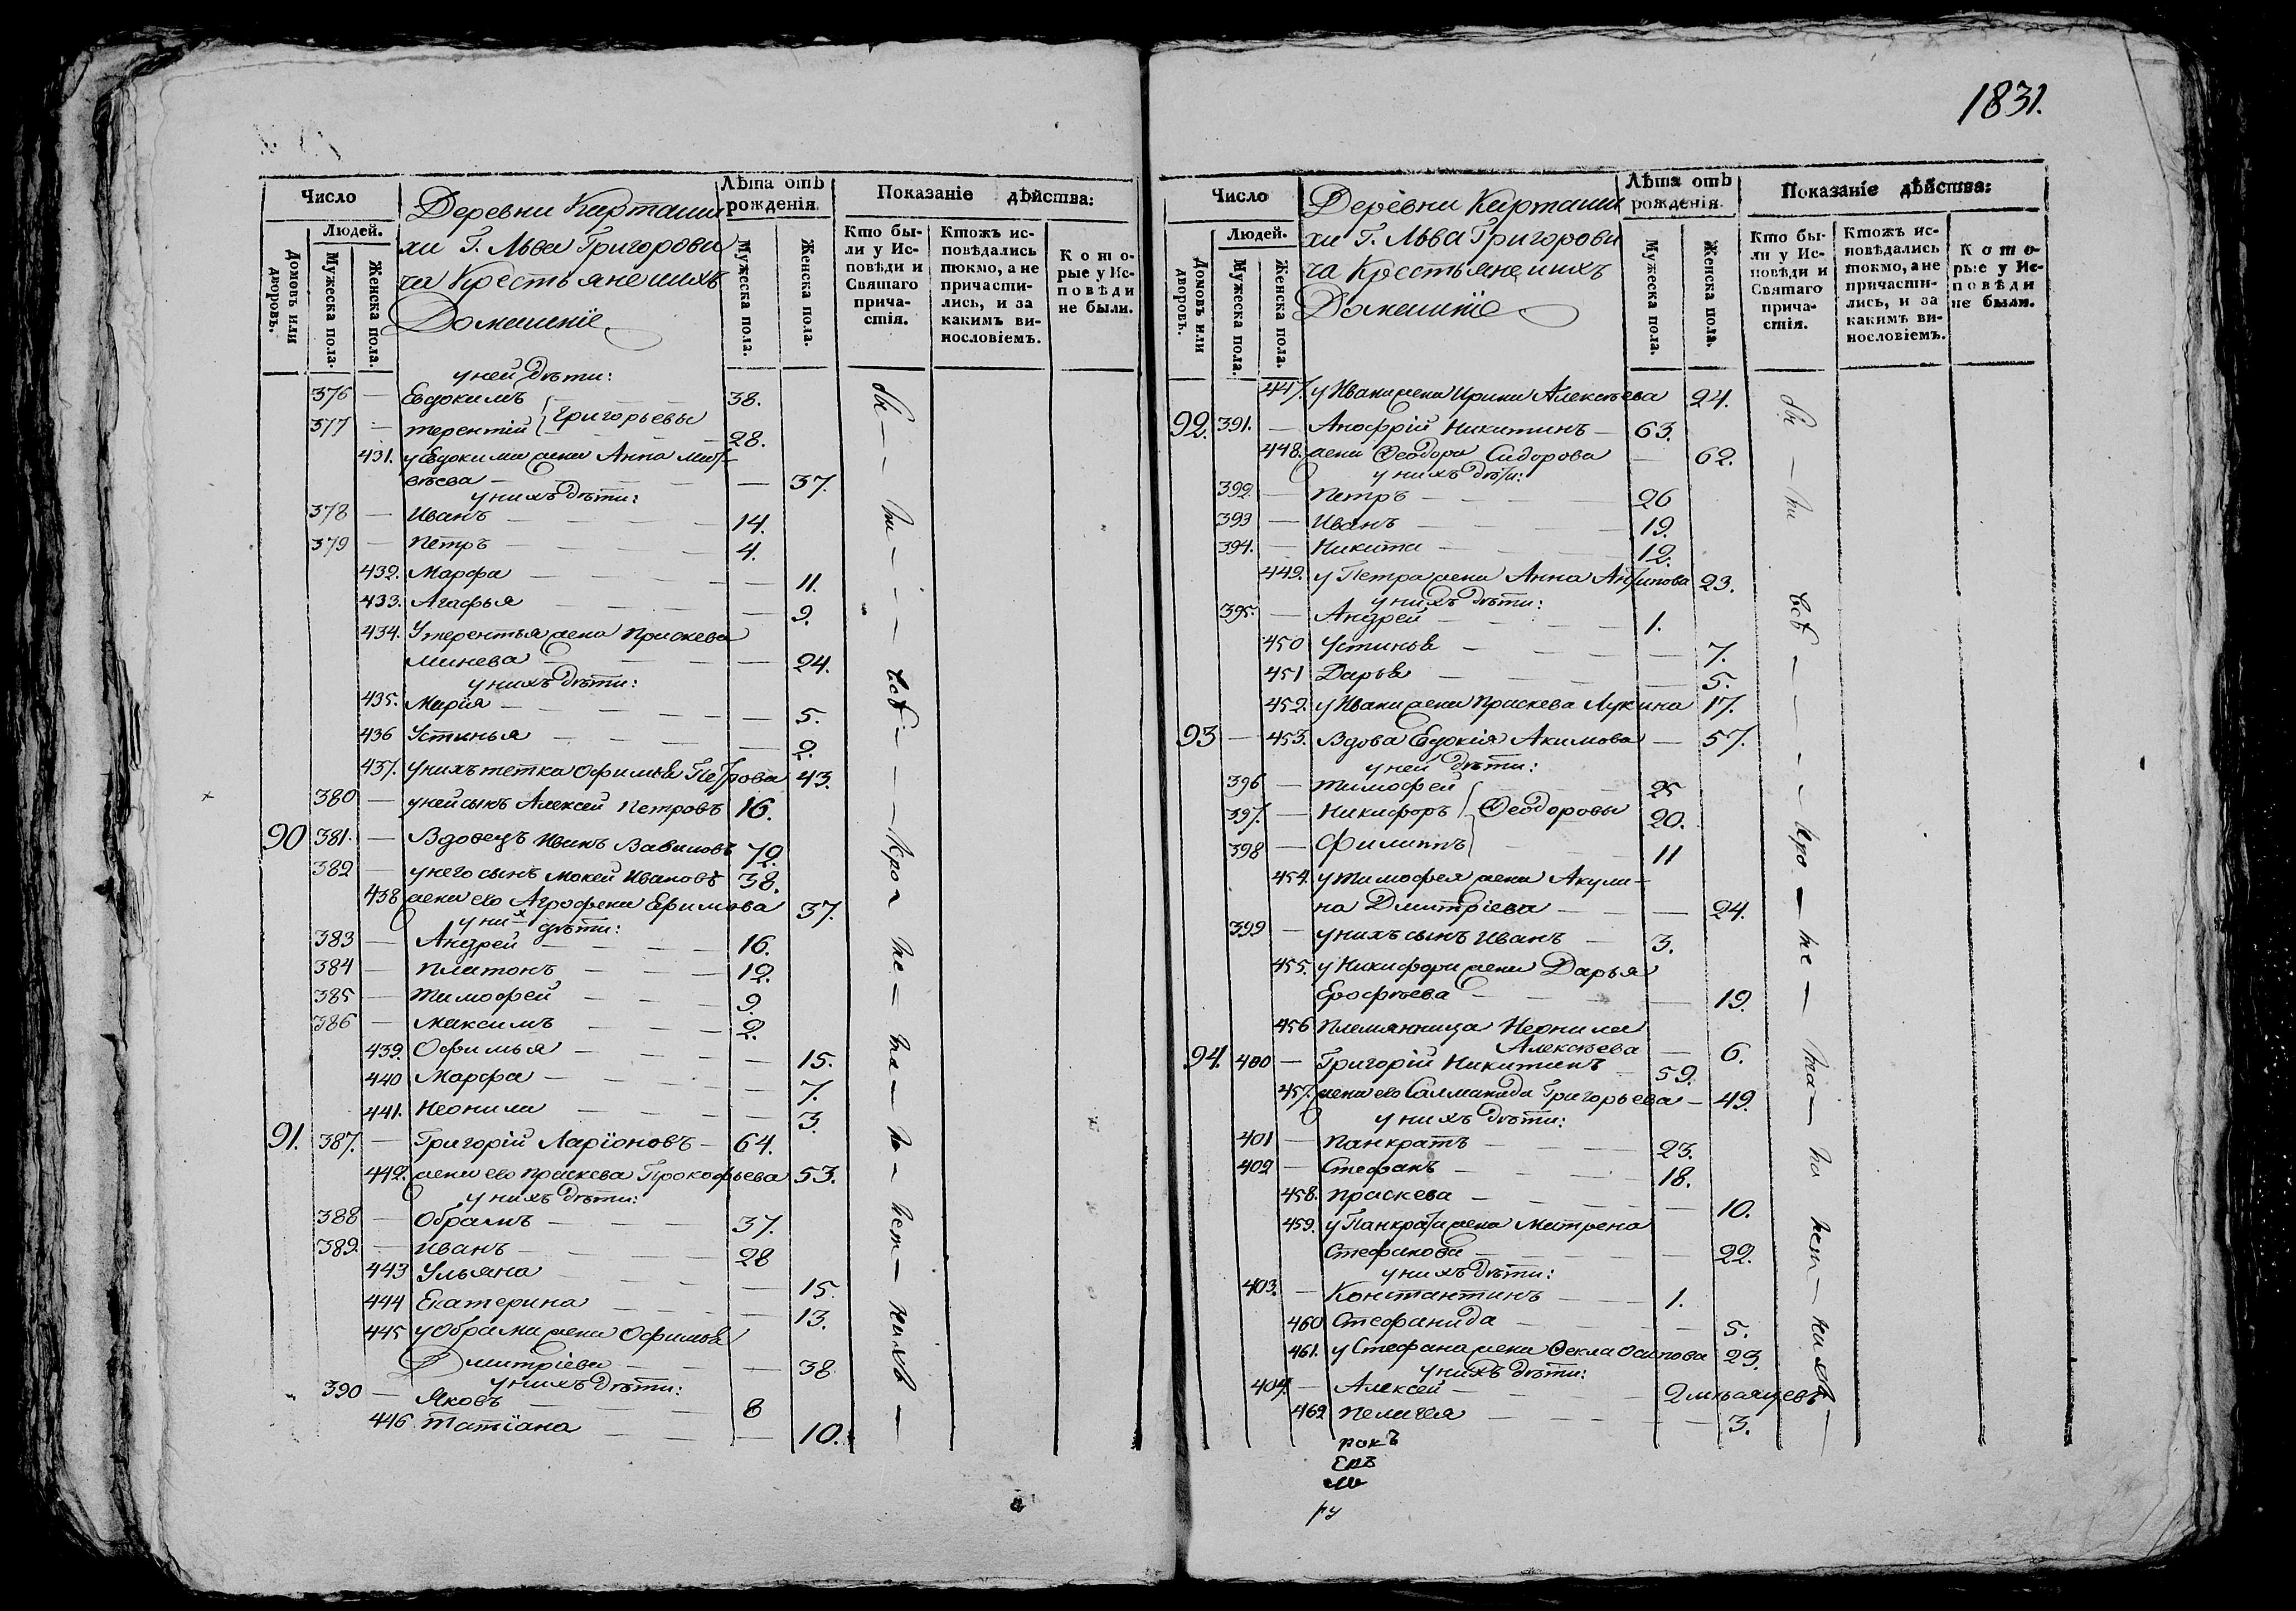 1831.
Число
Людей.
Домовъ или дворовъ.
Мужеска пола.
Женска пола.
Деревни Карташи
хи Г. Льва Григорови
ча Крестьяне и ихъ
Домашніе
Лѣта отъ рожденія.
Мужеска пола.
Женска пола.
Показаніе дѣйства:
Кто бы-
ли у Ис-
повѣди и
Святаго
прича-
стія.
Ктожъ ис-
повѣдались
токмо, а не
причасти-
лись, и за
какимъ ви-
нословіемъ.
Кото-
рые у Ис-
повѣди
не были.
у ней дѣти:
376 — Евдокимъ 38.
377 — Терентій } Григорьевы 28.
431. у Евдокима жена Анна Мат-
вѣева — — 37.
у нихъ дѣти:
378 — Иванъ — 14.
379 — Петръ — 4.
432. Марфа — 11.
433. Агафья — 9.
434. У Терентья жена Праскева
Минева — 24.
у нихъ дѣти:
435. Марія — 5.
436 Устинья — 2.
437. у нихъ тетка Офимья Петрова 43.
380 — у ней сынъ Алексей Петровъ 16.
90 381. — Вдовецъ Иванъ Вавиловъ 72.
382 — у него сынъ Мокей Ивановъ 38.
438 жена его Агрофена Ефимова 37.
у них дѣти:
383 — Андрей — 16.
384 — Платонъ — 12.
385 — Тимофей — 9.
386 — Максимъ — 2.
439. Офимья — 15.
440 Марфа — 7.
441. Неонила — 3.
91. 387. — Григорій Ларіоновъ — 64.
442. жена его Праскева Прокофьева 53.
у нихъ дѣти:
388 — Обрамъ — 37.
389. — Иванъ — 28
443 Ульяна — 15.
444 Екатерина — 13.
445 у Обрама жена Офимья
Дмитріева — — 38.
у нихъ дѣти:
390 — Яковъ — 8
446 Татіана — 10.
Число
Людей.
Домовъ или дворовъ.
Мужеска пола.
Женска пола.
Деревни Карташи
хи Г. Льва Григорови
ча Крестьяне и ихъ
Домашніе
Лѣта отъ рожденія.
Мужеска пола.
Женска пола.
Показаніе дѣйства:
Кто бы-
ли у Ис-
повѣди и
Святаго
прича-
стія.
Ктожъ ис-
повѣдались
токмо, а не
причасти-
лись, и за
какимъ ви-
нословіемъ.
Кото-
рые у Ис-
повѣди
не были.
447. у Ивана жена Ирина Алексѣева 24.
92. 391. — Анофрій Никитинъ — 63.
448. жена Ѳеодора Сидорова — 62.
у нихъ дѣти:
392 — Петръ — 26
393 — Иванъ — 19.
394. — Никита — 12.
449. у Петра жена Анна Антипова 23.
у нихъ дѣти:
395. — Андрей — 1.
450 Устинья — 7.
451 Дарья — 5.
452. у Ивана жена Праскева Лукина 17.
93 — 453. Вдова Евдокія Акимова — 57.
у ней дѣти:
396 — Тимофей 25
397. — Никифоръ } Ѳеодоровы 20.
398 — Филиппъ 11
454. у Тимофея жена Акули-
на Дмитріева — — 24.
399 — у нихъ сынъ Иванъ — 3.
455. у Никифора жена Дарья
Ерофѣева — — 19.
456 Племянница Неонила
Алексѣева — 6.
94. 400 — Григорій Никитинъ 59.
457. жена его Саламанида Григорьева — 49.
у нихъ дѣти:
401 — Панкратъ — 23.
402 — Стефанъ — 18.
458. Праскева — 10.
459. у Панкрата жена Матрена
Стефанова — — 22.
у нихъ дѣти:
403. — Константинъ — 1.
460 Стефанида — 5.
461. у Стефана жена Ѳекла Осипова 23.
у нихъ дѣти:
404. — Алексей — 2 мѣсяцевъ
462 Пелагея — 3.